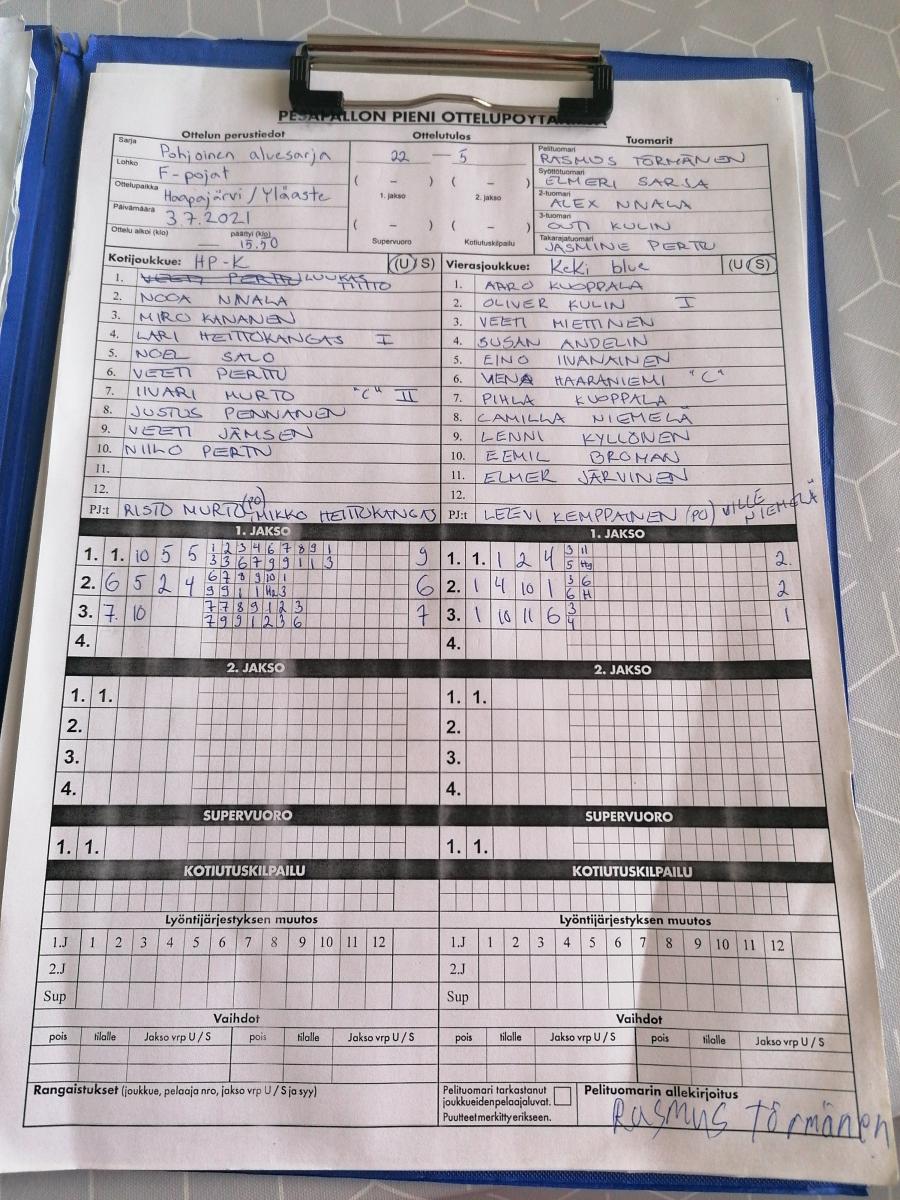 PESÄPALLON PIENI OTTELUPÖYTÄKIRJA
Ottelun perustiedot
Ottelutulos
Tuomarit
Sarja Pohjoinen aluesarja
Lohko F-pojat
Ottelupaikka Haapajärvi / Yläaste
Päivämäärä 3.7.2021
Ottelu alkoi (klo) — päättyi (klo) 15.50
22 — 5
( – ) ( – )
1. jakso 2. jakso
( – ) ( – )
Supervuoro Kotiutuskilpailu
Pelituomari RASMUS TÖRMÄNEN
Syöttötuomari ELMERI SARJA
2-tuomari ALEX NNALA
3-tuomari OUTI KULIN
Takarajatuomari JASMINE PERTTU
Kotijoukkue: HP-K (U/S)
1. VEETI PERTTU LUUKAS TIITTO
2. NOOA NNALA
3. MIRO KANANEN
4. LARI HEITTOKANGAS I
5. NOEL SALO
6. VEETI PERTTU
7. IIVARI MURTO "C" II
8. JUSTUS PENNANEN
9. VEETI JÄMSEN
10. NIILO PERTTU
11.
12.
PJ:t RISTO MURTO (PO) MIKKO HEITTOKANGAS
Vierasjoukkue: KeKi blue (U/S)
1. AARO KUOPPALA
2. OLIVER KULIN I
3. VEETI MIETTINEN
4. SUSAN ANDELIN
5. EINO IIVANAINEN
6. VIENA HAARANIEMI "C"
7. PIHLA KUOPPALA
8. CAMILLA NIEMELÄ
9. LENNI KYLLÖNEN
10. EEMIL BROMAN
11. ELMER JÄRVINEN
12.
PJ:t LEEVI KEMPPAINEN (PO) VILLE NIEMELÄ
1. JAKSO
1. 1. 10 5 5 1 2 3 4 6 7 8 9 1 9
3 3 6 7 9 9 1 1 3
2. 6 5 2 4 6 7 8 9 10 1 6
9 9 1 1 H2 3
3. 7. 10 7 7 8 9 1 2 3 7
7 9 9 1 2 3 6
4.
1. JAKSO
1. 1. 1 2 4 3 11 2.
5 H9
2. 1 4 10 1 3 6 2
6 H
3. 1 10 11 6 3 1
4
4.
2. JAKSO
1. 1.
2.
3.
4.
2. JAKSO
1. 1.
2.
3.
4.
SUPERVUORO
1. 1.
SUPERVUORO
1. 1.
KOTIUTUSKILPAILU
KOTIUTUSKILPAILU
Lyöntijärjestyksen muutos
1.J 1 2 3 4 5 6 7 8 9 10 11 12
2.J
Sup
Lyöntijärjestyksen muutos
1.J 1 2 3 4 5 6 7 8 9 10 11 12
2.J
Sup
Vaihdot
pois tilalle Jakso vrp U / S pois tilalle Jakso vrp U / S
Vaihdot
pois tilalle Jakso vrp U / S pois tilalle Jakso vrp U / S
Rangaistukset (joukkue, pelaaja nro, jakso vrp U / S ja syy)
Pelituomari tarkastanut
joukkueiden pelaajaluvat.
Puutteet merkitty erikseen.
Pelituomarin allekirjoitus
Rasmus Törmänen